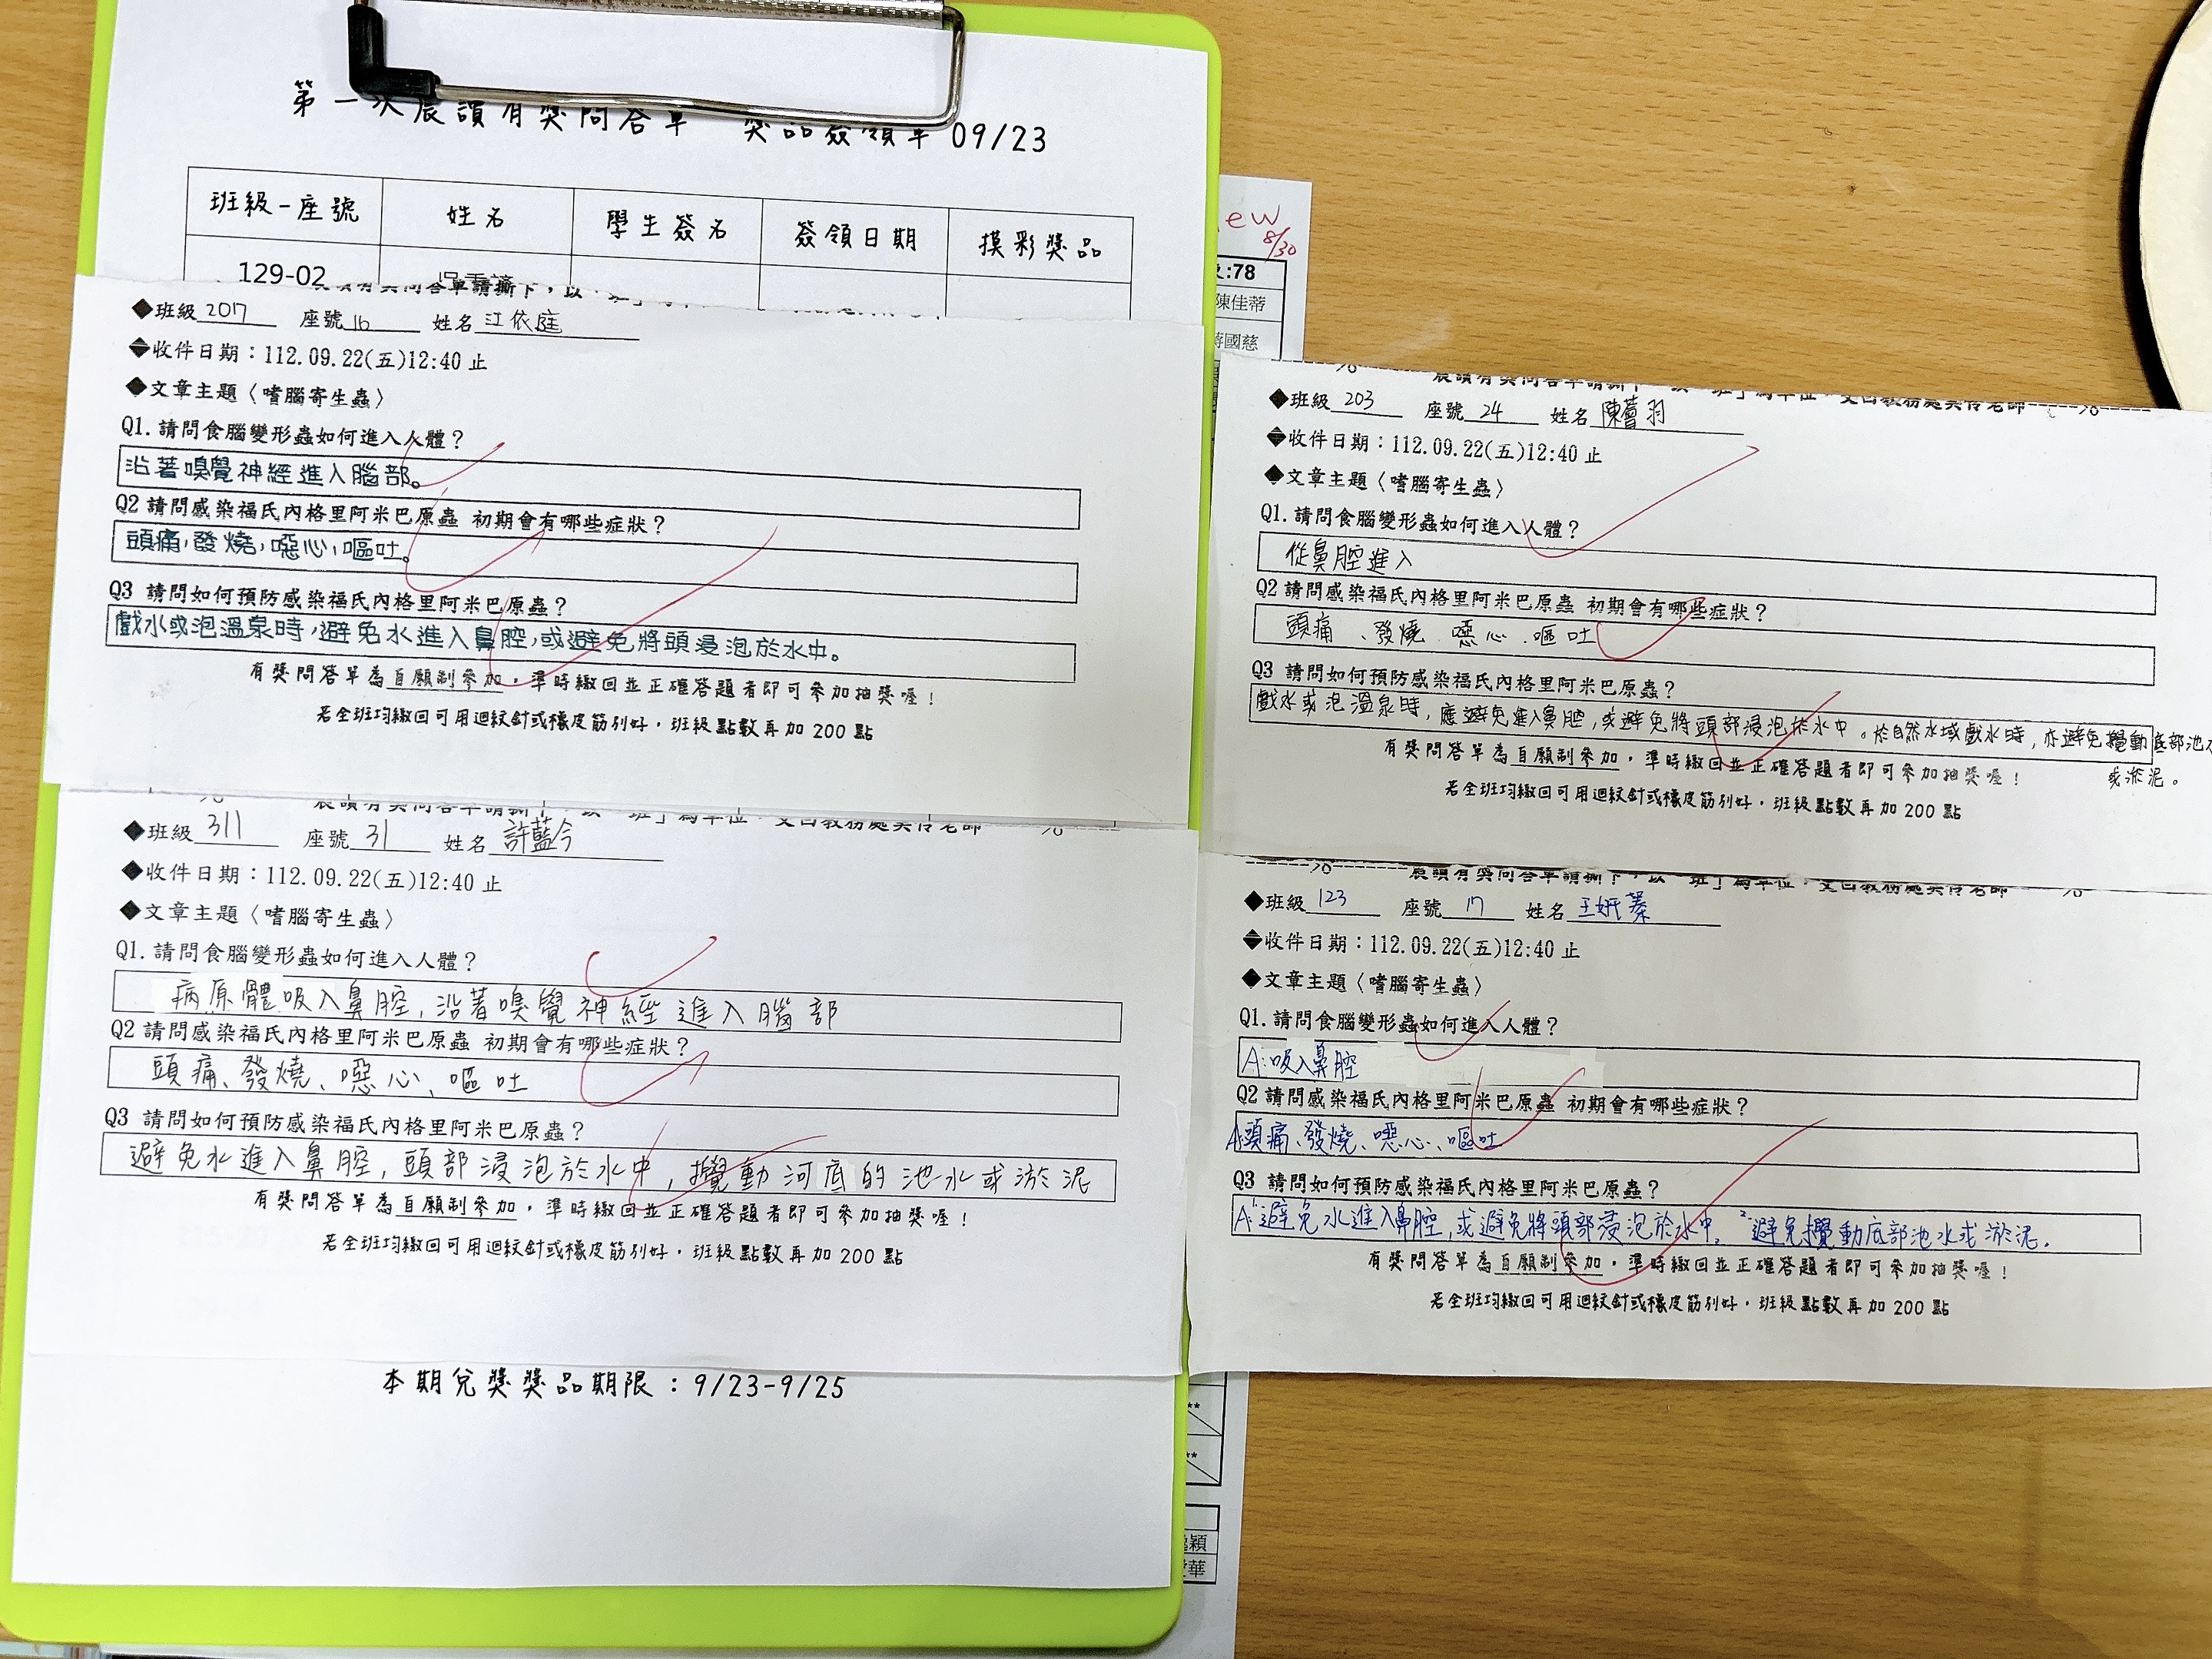 第一次晨讀有獎問答單 獎品簽領單 09/23
班級-座號 姓名 學生簽名 簽領日期 摸彩獎品
129-02
ew
8/30
:78
陳佳蒂
國慈
◆班級 207 座號 16 姓名 江依庭
◆收件日期：112.09.22(五)12:40 止
◆文章主題〈嗜腦寄生蟲〉
Q1.請問食腦變形蟲如何進入人體？
沿著嗅覺神經進入腦部。
Q2 請問感染福氏內格里阿米巴原蟲 初期會有哪些症狀？
頭痛,發燒,噁心,嘔吐。
Q3 請問如何預防感染福氏內格里阿米巴原蟲？
戲水或泡溫泉時,避免水進入鼻腔,或避免將頭浸泡於水中。
有獎問答單為自願制參加，準時繳回並正確答題者即可參加抽獎喔！
若全班均繳回可用迴紋針或橡皮筋別好，班級點數再加 200 點
晨讀有獎問答單請撕下，以「班」為單位，交回教務處
◆班級 203 座號 24 姓名 陳薈羽
◆收件日期：112.09.22(五)12:40 止
◆文章主題〈嗜腦寄生蟲〉
Q1.請問食腦變形蟲如何進入人體？
從鼻腔進入
Q2 請問感染福氏內格里阿米巴原蟲 初期會有哪些症狀？
頭痛、發燒、噁心、嘔吐
Q3 請問如何預防感染福氏內格里阿米巴原蟲？
戲水或泡溫泉時,應避免進入鼻腔,或避免將頭部浸泡於水中。於自然水域戲水時,亦避免攪動底部池
或淤泥。
有獎問答單為自願制參加，準時繳回並正確答題者即可參加抽獎喔！
若全班均繳回可用迴紋針或橡皮筋別好，班級點數再加 200 點
◆班級 311 座號 31 姓名 許藍今
◆收件日期：112.09.22(五)12:40 止
◆文章主題〈嗜腦寄生蟲〉
Q1.請問食腦變形蟲如何進入人體？
病原體吸入鼻腔,沿著嗅覺神經進入腦部
Q2 請問感染福氏內格里阿米巴原蟲 初期會有哪些症狀？
頭痛、發燒、噁心、嘔吐
Q3 請問如何預防感染福氏內格里阿米巴原蟲？
避免水進入鼻腔,頭部浸泡於水中,攪動河底的池水或淤泥
有獎問答單為自願制參加，準時繳回並正確答題者即可參加抽獎喔！
若全班均繳回可用迴紋針或橡皮筋別好，班級點數再加 200 點
◆班級 123 座號 17 姓名 王妍蓁
◆收件日期：112.09.22(五)12:40 止
◆文章主題〈嗜腦寄生蟲〉
Q1.請問食腦變形蟲如何進入人體？
A:吸入鼻腔
Q2 請問感染福氏內格里阿米巴原蟲 初期會有哪些症狀？
A:頭痛、發燒、噁心、嘔吐
Q3 請問如何預防感染福氏內格里阿米巴原蟲？
A:1.避免水進入鼻腔,或避免將頭部浸泡於水中. 2.避免攪動底部池水或淤泥.
有獎問答單為自願制參加，準時繳回並正確答題者即可參加抽獎喔！
若全班均繳回可用迴紋針或橡皮筋別好，班級點數再加 200 點
本期兌獎獎品期限：9/23-9/25
穎
華